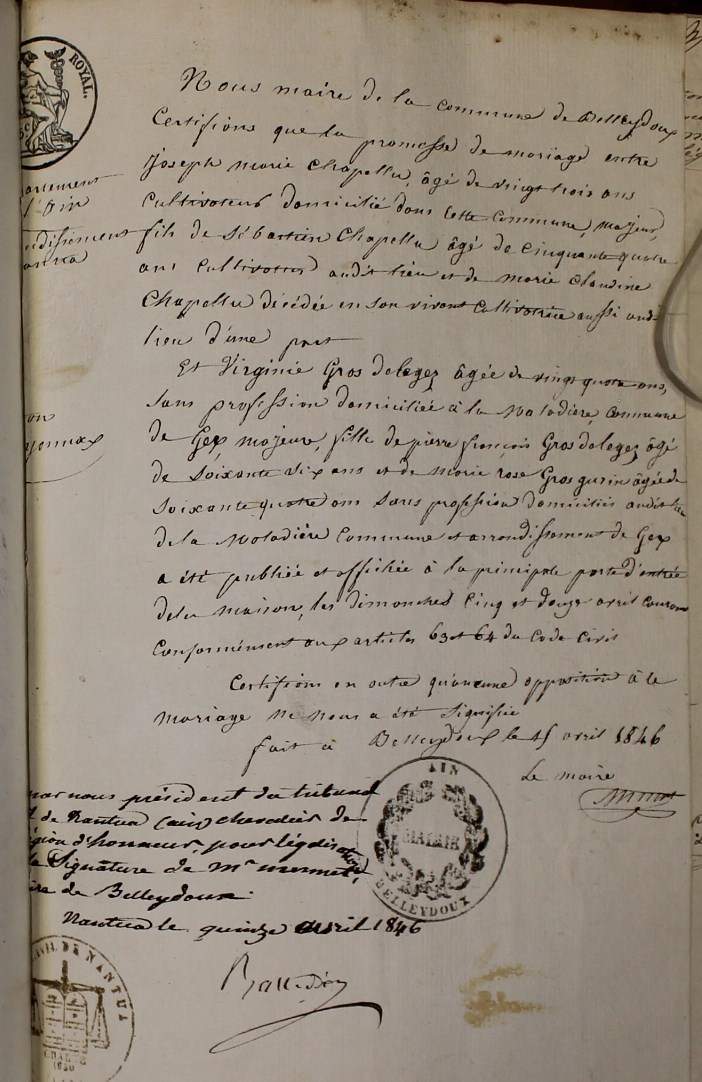 ROYAL.
Nous maire de la commune de Belleydoux
Certifions que la promesse de mariage entre
Joseph Marie Chapellu, âgé de vingt trois ans
cultivateur domicilié dans cette commune, majeur,
fils de Sébastien Chapellu âgé de cinquante quatre
ans cultivateur audit lieu et de marie claudine
Chapellu décédée en son vivant cultivatrice aussi audit
lieu d'une part
Et Virginie Gros dalegez âgée de vingt quatre ans,
sans profession domiciliée à la Maladière, commune
de Gex, majeure, fille de pierre françois Gros dalegez âgé
de soixante dix ans et de Marie rose Gros gurin âgée de
soixante quatre ans sans profession domiciliés audit lieu
de la Maladière commune et arrondissement de Gex
a été publiée et affichée à la principale porte d'entrée
de la maison, les dimanches cinq et douze avril courant
conformément aux articles 63 et 64 du code civil
Certifions en outre qu'aucune opposition à le
mariage ne nous a été signifiée
fait à Belleydoux le 15 avril 1846
Le maire
artement
l'Ain
ndissement
antua
on
yonnax
par nous président du tribunal
de Nantua (ain) chevalier de
égion d'honneur, pour légalisation
la signature de Mr mermet,
ire de Belleydoux.
Nantua le quinze avril 1846
AIN
MAIRIE
BELLEYDOUX
CIVIL DE NANTUA
CHARTE
1830